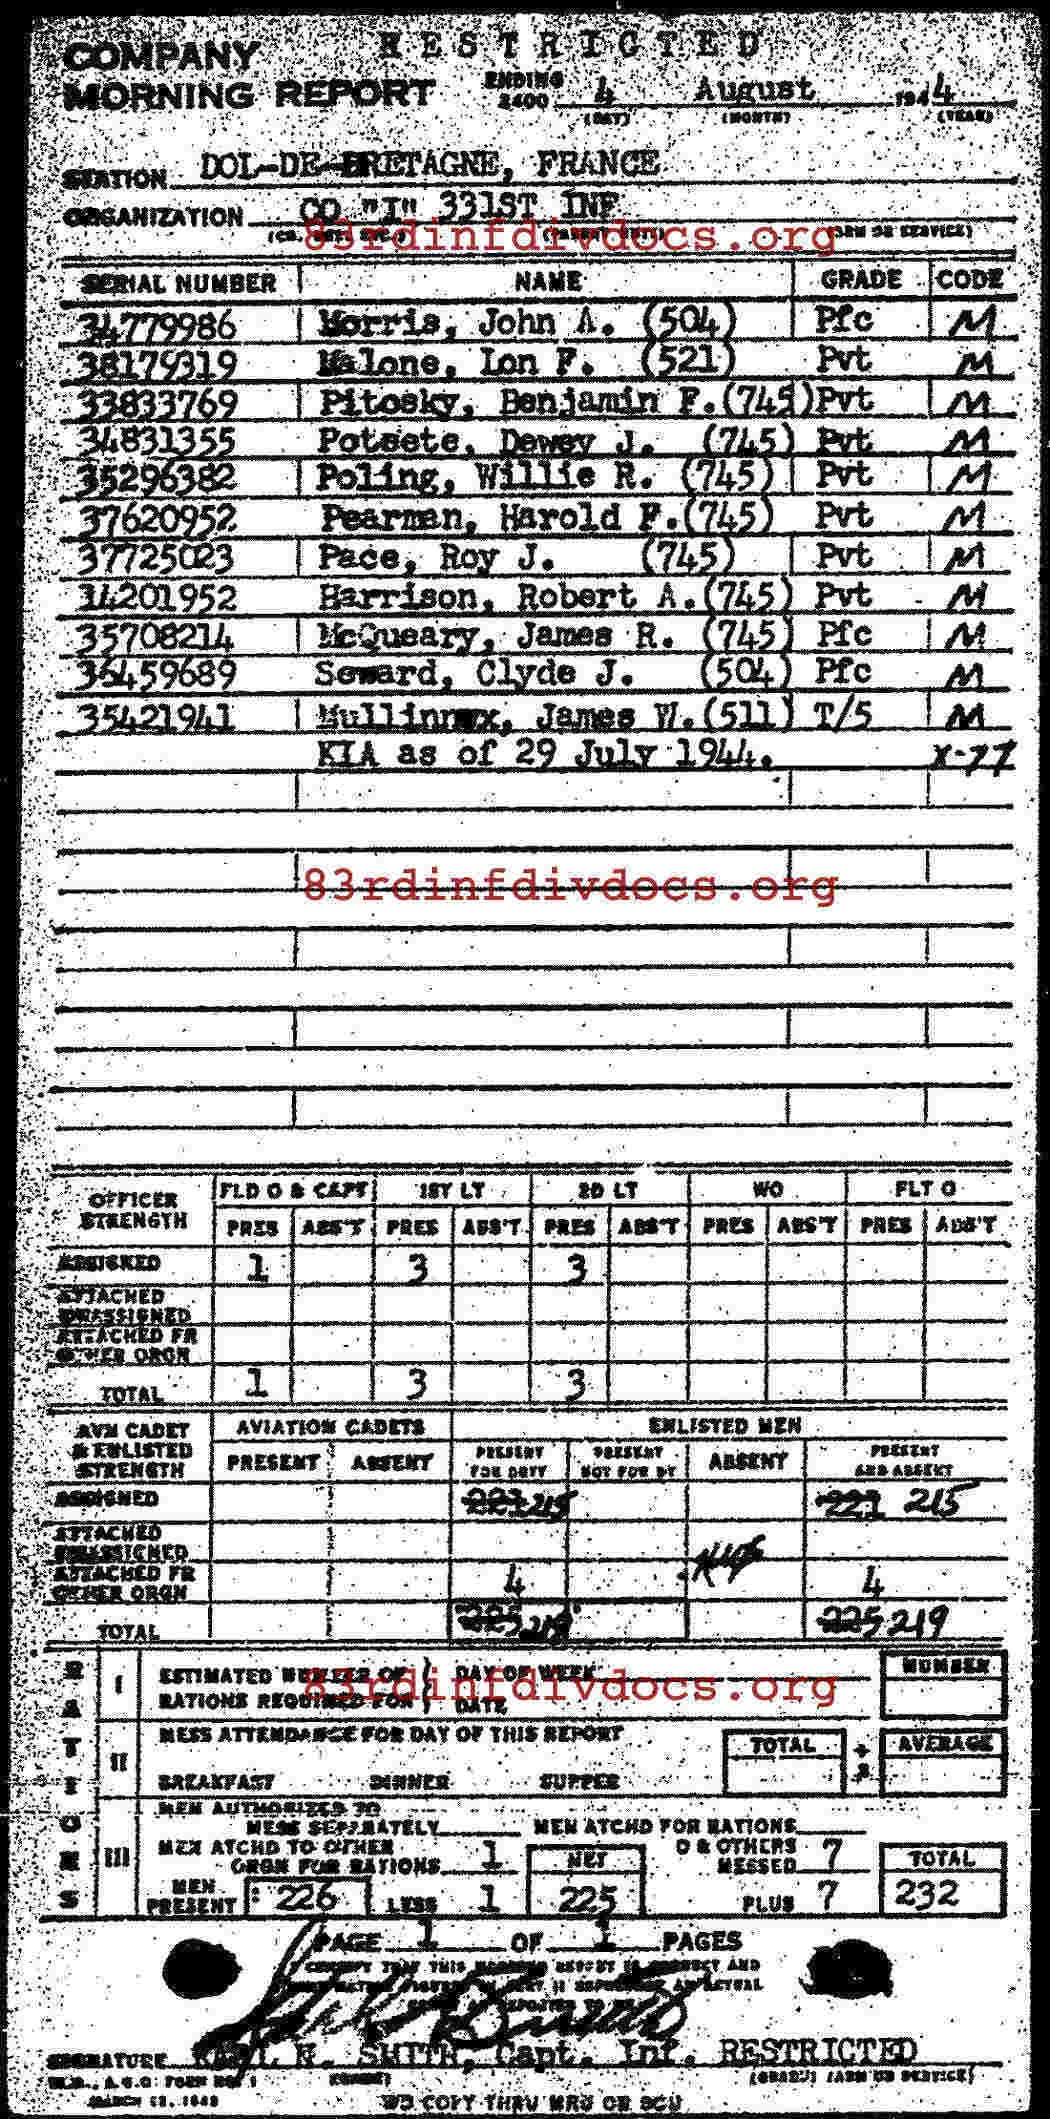 RESTRICTED
COMPANY
MORNING REPORT
ENDING 2400 4 August 1944
(DAY) (MONTH) (YEAR)
STATION DOL-DE-BRETAGNE, FRANCE
ORGANIZATION CO "I" 331ST INF
83rdinfdivdocs.org
SERIAL NUMBER NAME GRADE CODE
34779986 Morris, John A. (504) Pfc M
38179319 Malone, Lon F. (521) Pvt M
33833769 Pitosky, Benjamin F. (745) Pvt M
34831355 Poteete, Dewey J. (745) Pvt M
35296382 Poling, Willie R. (745) Pvt M
37620952 Pearman, Harold F. (745) Pvt M
37725023 Pace, Roy J. (745) Pvt M
34201952 Harrison, Robert A. (745) Pvt M
35708214 McQueary, James R. (745) Pfc M
36459689 Seward, Clyde J. (504) Pfc M
35421941 Mullinnax, James W. (511) T/5 M
KIA as of 29 July 1944. X-77
83rdinfdivdocs.org
OFFICER STRENGTH FLD O & CAPT 1ST LT 2D LT WO FLT O
PRES ABS'T PRES ABS'T PRES ABS'T PRES ABS'T PRES ABS'T
ASSIGNED 1 3 3
ATTACHED UNASSIGNED
ATTACHED FR OTHER ORGN
TOTAL 1 3 3
AVN CADET & ENLISTED STRENGTH AVIATION CADETS ENLISTED MEN
PRESENT ABSENT PRESENT FOR DUTY PRESENT NOT FOR DY ABSENT PRESENT AND ABSENT
ASSIGNED 221 215 221 215
ATTACHED UNASSIGNED
ATTACHED FR OTHER ORGN 4 4
TOTAL 225 219 225 219
RATIONS
I ESTIMATED NUMBER OF RATIONS REQUIRED FOR DAY OF WEEK DATE NUMBER
83rdinfdivdocs.org
II MESS ATTENDANCE FOR DAY OF THIS REPORT TOTAL ÷ 3 AVERAGE
BREAKFAST DINNER SUPPER
III MEN AUTHORIZED TO MESS SEPARATELY MEN ATCHD FOR RATIONS
MEN ATCHD TO OTHER ORGN FOR RATIONS 1 NET O & OTHERS MESSED 7 TOTAL
MEN PRESENT 226 LESS 1 225 PLUS 7 232
PAGE 1 OF 1 PAGES
I CERTIFY THAT THIS MORNING REPORT IS CORRECT AND
SIGNATURE KARL H. SMITH, Capt. Inf. RESTRICTED
W.D., A.G.O. FORM NO. 1 (NAME) (GRADE) (ARM OR SERVICE)
WD COPY THRU MRU OR SCU